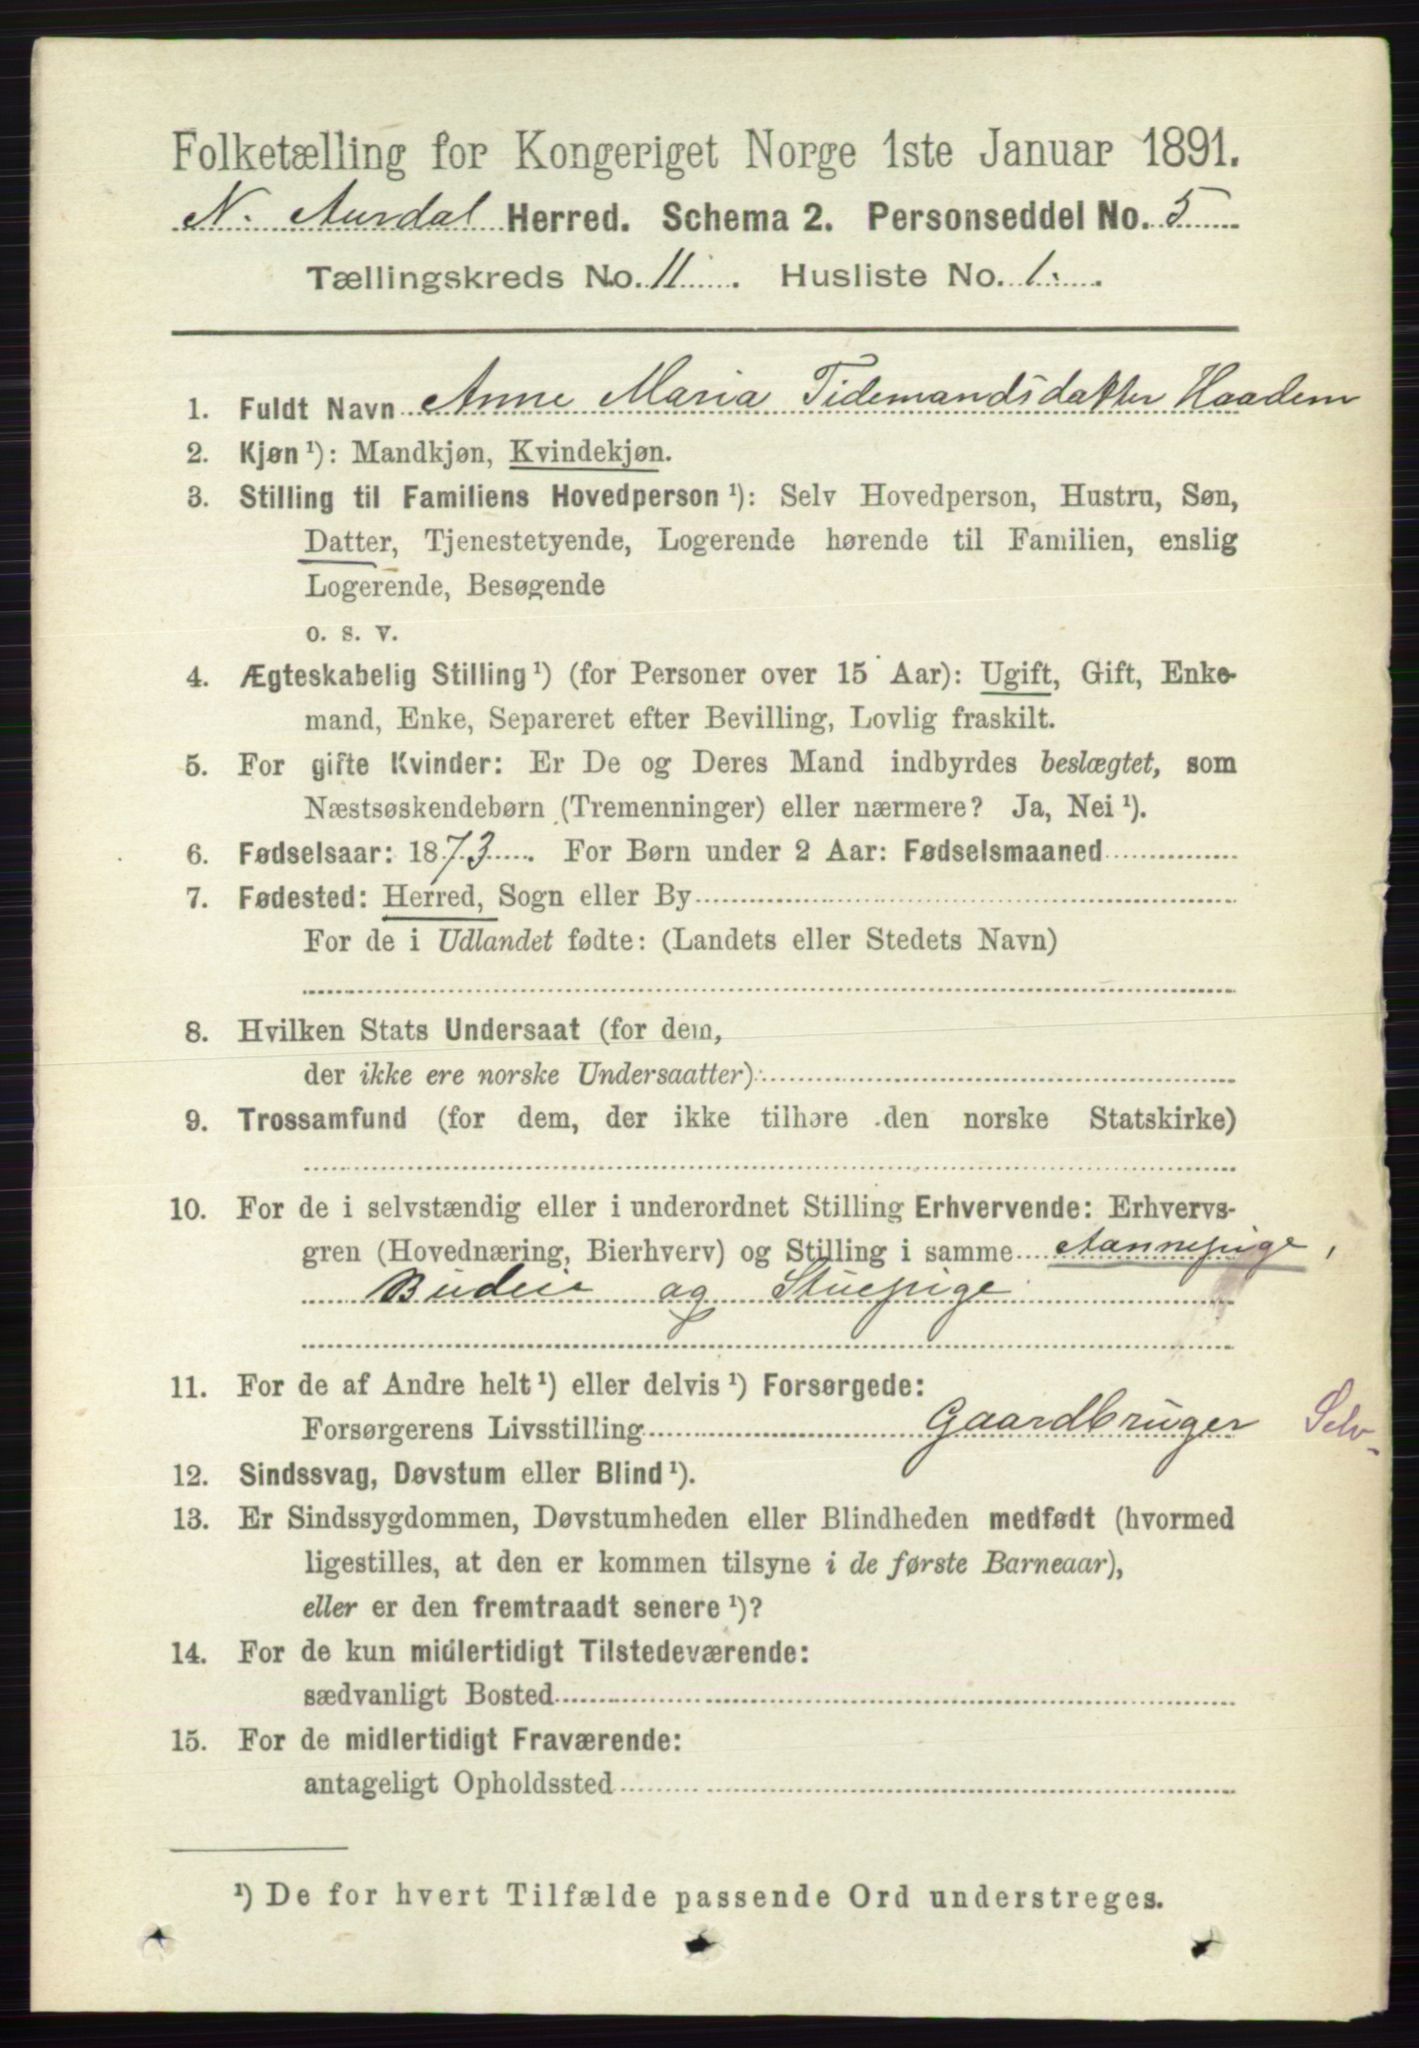 Folketælling for Kongeriget Norge 1ste Januar 1891.
N. Aurdal Herred. Schema 2. Personseddel No. 5
Tællingskreds No. 11. Husliste No. 1.
1. Fuldt Navn Anne Maria Tidemandsdatter Haadem
2. Kjøn¹): Mandkjøn, Kvindekjøn.
3. Stilling til Familiens Hovedperson¹): Selv Hovedperson, Hustru, Søn,
Datter, Tjenestetyende, Logerende hørende til Familien, enslig
Logerende, Besøgende
o. s. v.
4. Ægteskabelig Stilling¹) (for Personer over 15 Aar): Ugift, Gift, Enke-
mand, Enke, Separeret efter Bevilling, Lovlig fraskilt.
5. For gifte Kvinder: Er De og Deres Mand indbyrdes beslægtet, som
Næstsøskendebørn (Tremenninger) eller nærmere? Ja, Nei¹).
6. Fødselsaar: 1873. For Børn under 2 Aar: Fødselsmaaned
7. Fødested: Herred, Sogn eller By
For de i Udlandet fødte: (Landets eller Stedets Navn)
8. Hvilken Stats Undersaat (for dem,
der ikke ere norske Undersaatter):
9. Trossamfund (for dem, der ikke tilhøre den norske Statskirke)
10. For de i selvstændig eller i underordnet Stilling Erhvervende: Erhvervs-
gren (Hovednæring, Bierhverv) og Stilling i samme Aannepige,
Budeie og Stuepige
11. For de af Andre helt¹) eller delvis¹) Forsørgede:
Forsørgerens Livsstilling Gaardbruger Selv-
12. Sindssvag, Døvstum eller Blind¹).
13. Er Sindssygdommen, Døvstumheden eller Blindheden medfødt (hvormed
ligestilles, at den er kommen tilsyne i de første Barneaar),
eller er den fremtraadt senere¹)?
14. For de kun midlertidigt Tilstedeværende:
sædvanligt Bosted
15. For de midlertidigt Fraværende:
antageligt Opholdssted
¹) De for hvert Tilfælde passende Ord understreges.